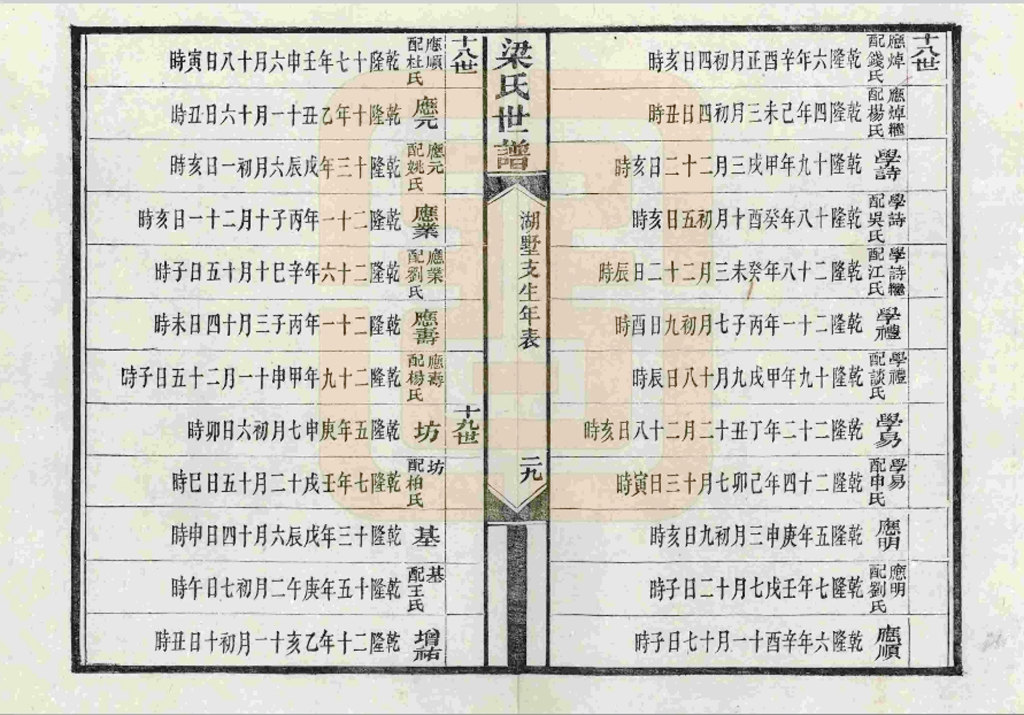 十八世
應焯配錢氏 乾隆六年辛酉正月初四日亥時
應焯繼配楊氏 乾隆四年己未三月初四日丑時
學詩 乾隆十九年甲戌三月二十二日亥時
學詩配吳氏 乾隆十八年癸酉十月初五日亥時
學詩繼配江氏 乾隆二十八年癸未三月二十二日辰時
學禮 乾隆二十一年丙子七月初九日酉時
學禮配談氏 乾隆十九年甲戌九月十八日辰時
學易 乾隆二十二年丁丑十二月二十八日亥時
學易配申氏 乾隆二十四年己卯七月初三十日寅時
應明 乾隆五年庚申三月初九日亥時
應明配劉氏 乾隆七年壬戌七月十二日子時
應順 乾隆六年辛酉十一月十七日子時
梁氏世譜
湖墅支生年表
二九
十八世
應順配杜氏 乾隆十七年壬申六月十八日寅時
應元 乾隆十年乙丑十一月十六日丑時
應元配姚氏 乾隆十三年戊辰六月初一日亥時
應業 乾隆二十一年丙子十月二十一日亥時
應業配劉氏 乾隆二十六年辛巳十月十五日子時
應壽 乾隆二十一年丙子三月十四日未時
應壽配楊氏 乾隆二十九年甲申十一月二十五日子時
十九世
坊 乾隆五年庚申七月初六日卯時
坊配柏氏 乾隆七年壬戌十二月十五日巳時
基 乾隆十三年戊辰六月十四日申時
基配王氏 乾隆十五年庚午二月初七日午時
增祐 乾隆二十年乙亥十一月初十日丑時